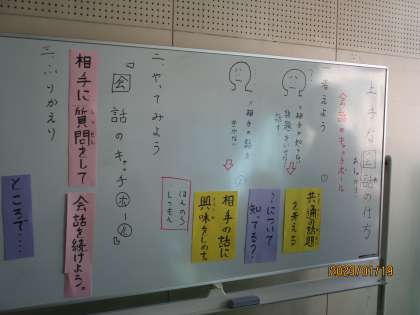 上手な会話の仕方
会話のキャッチボール
一、考えよう
共通の話題
を考える
？について
知ってる？
相手の話に
興味をしめす
ほんのう
しつもん
二、やってみよう
『会話のキャッチボール』
相手に質問をして
会話を続けよう。
三、ふりかえり
ところで…
2023/01/19